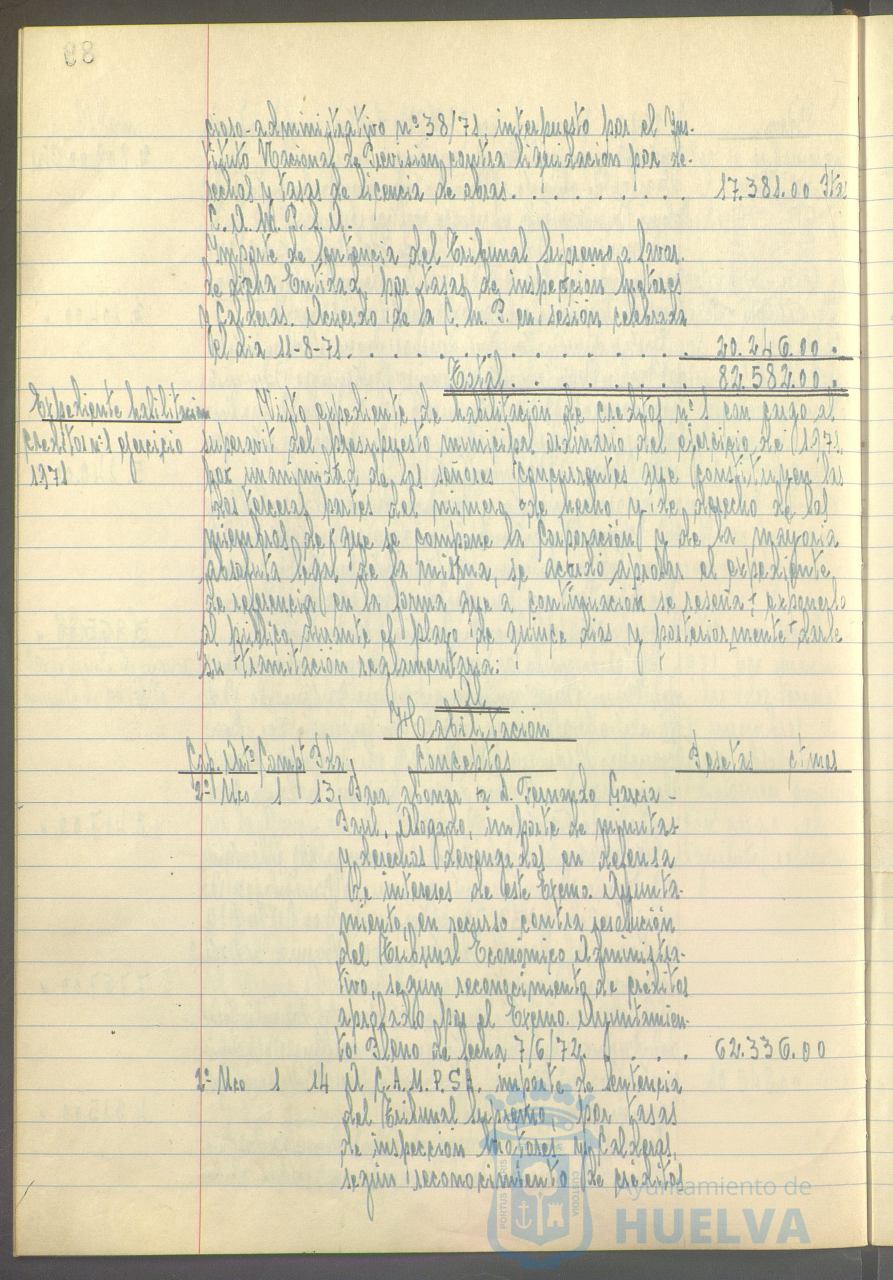 89
cioso-administrativo nº 38/71, interpuesto por el Ins-
tituto Nacional de Previsión contra liquidación por de-
rechos y tasas de licencia de obras. . . . . . . . . . 17.381.00 Pta
C. A. M. P. S. A.
Importe de Sentencia del Tribunal Supremo a favor
de dicha Entidad, por tasas de inspección Motores
y Calderas. Acuerdo de la C. M. P. en sesión celebrada
el dia 11-8-71. . . . . . . . . . . . . 20.246.00 .
Total. . . . . . . . 82.582.00 .
Expediente habilitacion
creditos nº 1 ejercicio
1971
Visto expediente de habilitación de creditos nº 1 con cargo al
superavit del presupuesto municipal ordinario del ejercicio de 1971
por unanimidad de los señores concurrentes que constituyen las
dos terceras partes del número de hecho y de derecho de los
miembros de que se compone la Corporación y de la mayoria
absoluta legal de la misma, se acordó aprobar el expediente
de referencia en la forma que a continuación se reseña y exponerlo
al público durante el plazo de quince dias y posteriormente darle
su tramitación reglamentaria:
Habilitación
Cap. Artº Comptº Pda Conceptos Pesetas ctmos
2º Uco 1 13, Para abonar a D. Fernando Garcia-
Bazil, Abogado, importe de minutas
y derechos devengados en defensa
de intereses de este Excmo. Ayunta-
miento, en recurso contra resolución
del Tribunal Económico Administra-
tivo, según reconocimiento de créditos
aprobado por el Excmo. Ayuntamien-
to Pleno de fecha 7/6/72. . . . . 62.336.00
2º Uco 1 14 A C.A.M.P.S.A. importe de Sentencia
del Tribunal Supremo, por tasas
de inspección Motores y Calderas,
según reconocimiento de créditos
PORTUS MARIS
CUSTODIA
Ayuntamiento de
HUELVA